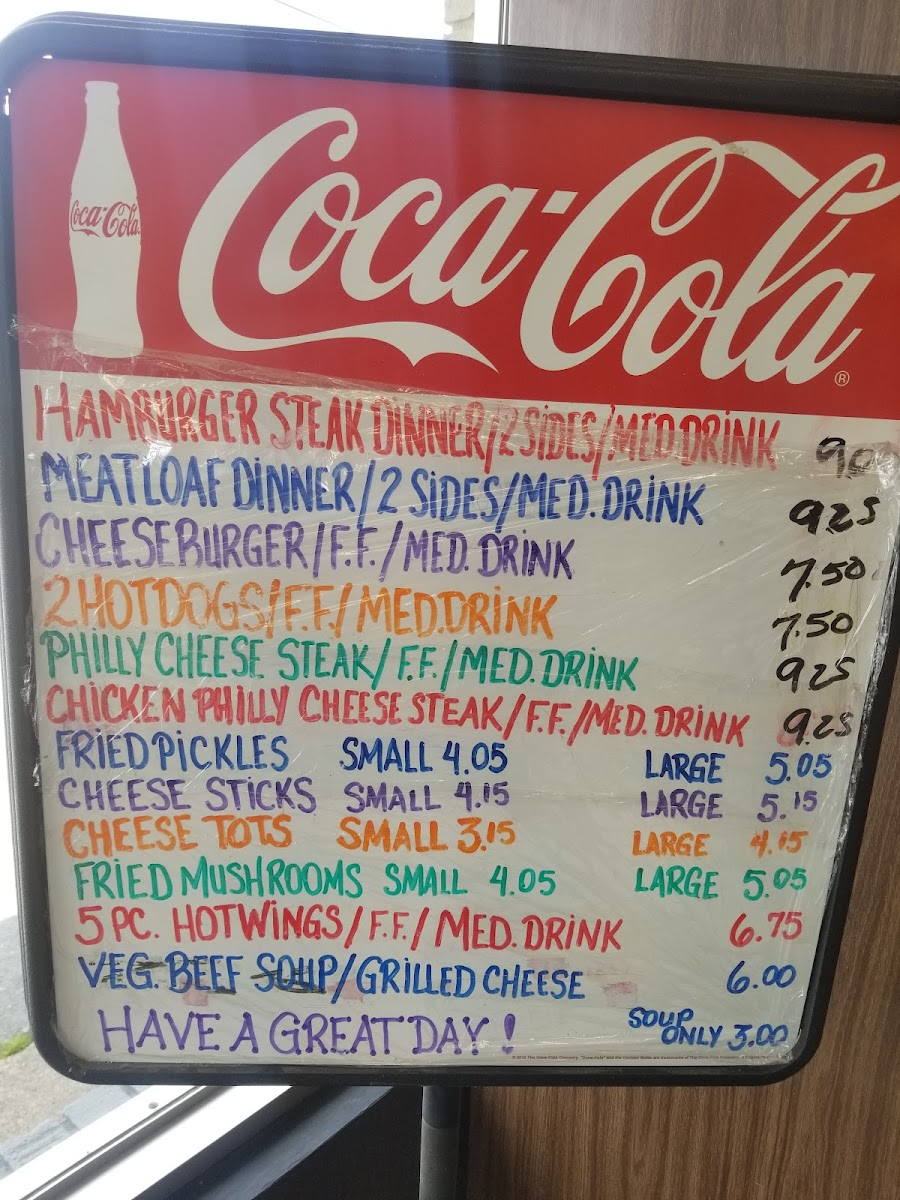 Coca-Cola
Coca-Cola®
HAMBURGER STEAK DINNER/2 SIDES/MED.DRINK
MEATLOAF DINNER/2 SIDES/MED. DRINK 925
CHEESEBURGER/F.F./MED. DRINK 7.50
2 HOTDOGS/F.F./MED.DRINK 7.50
PHILLY CHEESE STEAK/F.F./MED. DRINK 925
CHICKEN PHILLY CHEESE STEAK/F.F./MED. DRINK 9.25
FRIED PICKLES SMALL 4.05 LARGE 5.05
CHEESE STICKS SMALL 4.15 LARGE 5.15
CHEESE TOTS SMALL 3.15 LARGE 4.15
FRIED MUSHROOMS SMALL 4.05 LARGE 5.05
5 PC. HOTWINGS/F.F./MED. DRINK 6.75
VEG. BEEF SOUP/GRILLED CHEESE 6.00
HAVE A GREAT DAY!
SOUP
ONLY 3.00